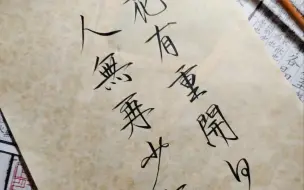 花有重開日
人無再少